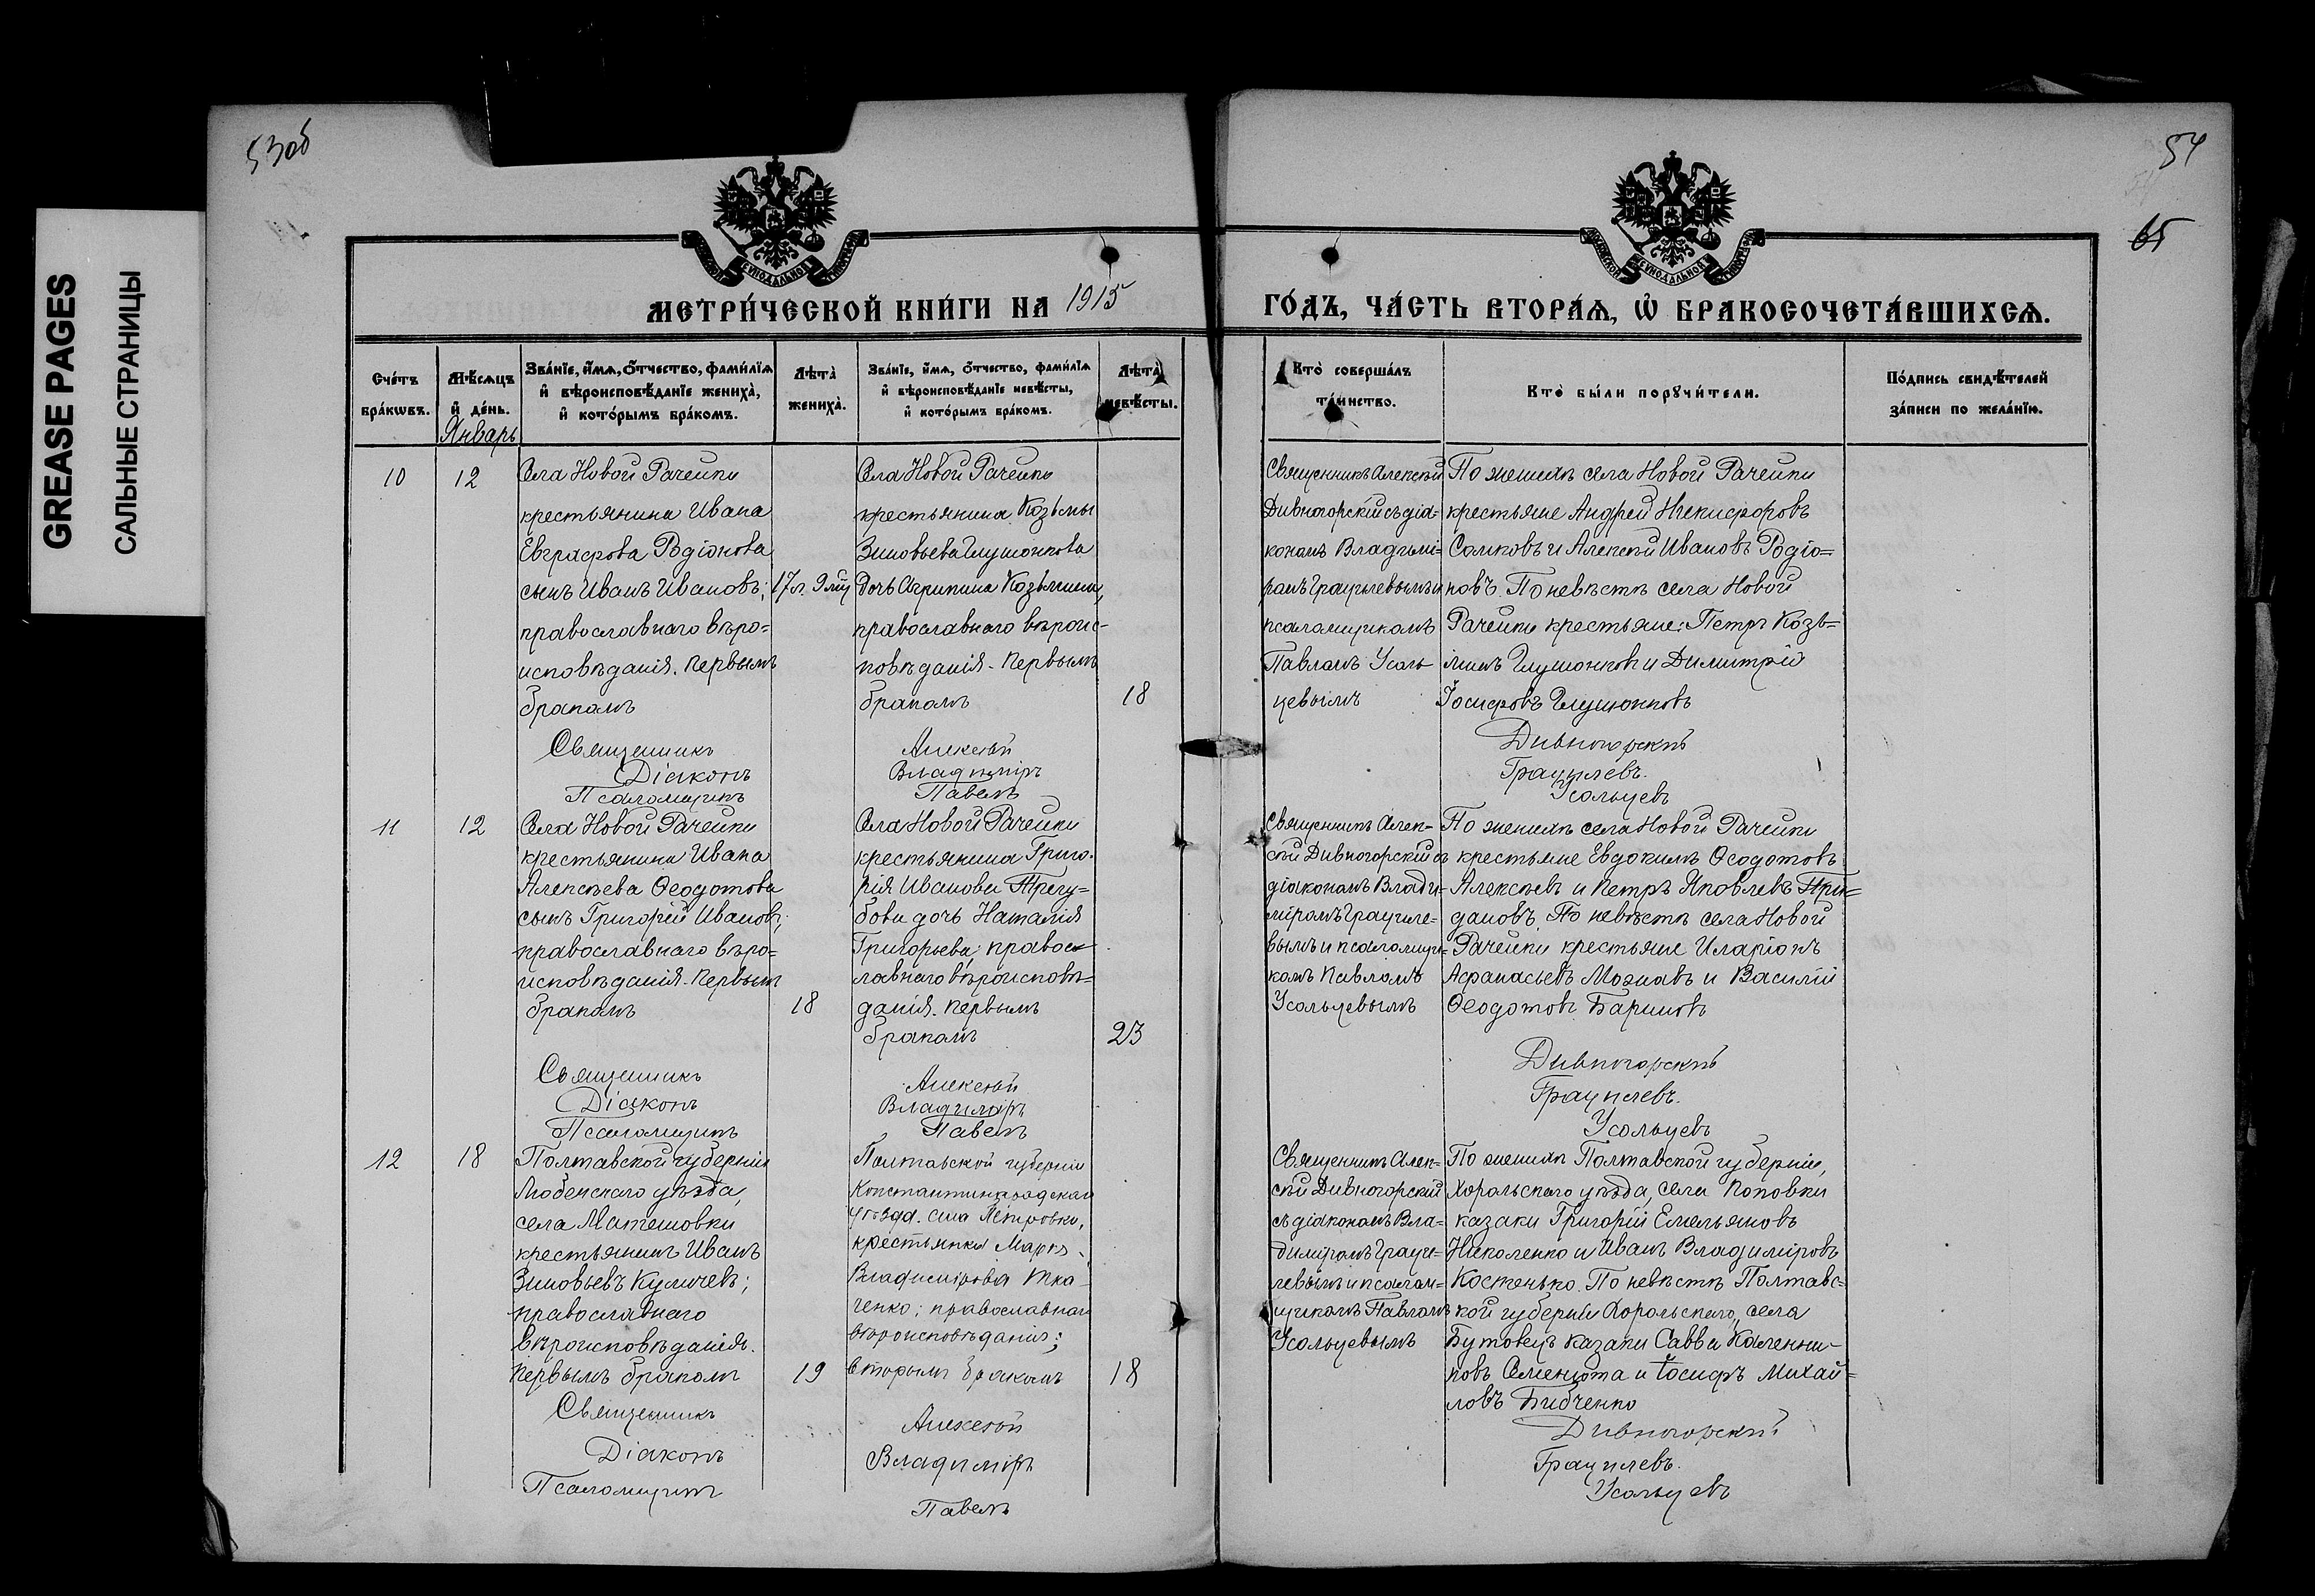 GREASE PAGES
САЛЬНЫЕ СТРАНИЦЫ
53об
54
65
МЕТРИ́ЧЕСКОЙ КНИ́ГИ НА 1915
ГО́ДЪ, ЧА́СТЬ ВТОРА́Ѧ, Ѡ҆ БРАКОСОЧЕТА́ВШИХСѦ.
Сче́тъ бра́кѡвъ.
Мѣ́сѧцъ и҆ де́нь.
Январь
Зва́нїе, и҆́мѧ, ѻ҆́тчество, фами́лїѧ и҆ вѣроисповѣ́данїе жениха̀, и҆ кото́рымъ бра́комъ.
Лѣта̀ жениха̀.
Зва́нїе, и҆́мѧ, ѻ҆́тчество, фами́лїѧ и҆ вѣроисповѣ́данїе невѣ́сты, и҆ кото́рымъ бра́комъ.
Лѣта̀ невѣ́сты.
Кто̀ соверша́лъ та́инство.
Кто̀ бы́ли порꙋчи́тели.
По́дпись свидѣ́телей за́писи по жела́нїю.
10
12
Села Новой Рачейки
крестьянина Ивана
Евграфова Родіонова
сынъ Иванъ Ивановъ;
православнаго вѣро=
исповѣданія. первымъ
бракомъ
17л. 9 мц
Села Новой Рачейки
крестьянина Козьмы
Зиновьева Глушонкова
Дочь Агрипина Козьмина,
православнаго вѣроис-
повѣданія. первымъ
бракомъ
18
Священникъ Алексѣй
Дивногорскій съ діа=
кономъ Владимі=
ромъ Грацилевымъ и
псаломщикомъ
Павломъ Усоль
цевымъ
По женихѣ села Новой Рачейки
крестьяне Андрей Никифоровъ
Сомковъ и Алексѣй Ивановъ Родіо=
новъ. По невѣстѣ села Новой
Рачейки крестьяне: Петръ Козь=
минъ Глушонковъ и Димитрій
Іосифовъ Глушонковъ
Священникъ Алексѣй Дивногорскій
Діаконъ Владиміръ Грацилевъ.
Псаломщикъ Павелъ Усольцевъ
11
12
Села Новой Рачейки
крестьянина Ивана
Алексѣева Ѳеодотова
сынъ Григорій Ивановъ;
православнаго вѣро=
исповѣданія. первымъ
бракомъ
18
Села Новой Рачейки
крестьянина Григо-
рія Иванова Трегу=
бова дочь Наталія
Григорьева; правос-
лавнаго вѣроисповѣ=
данія. первымъ
бракомъ
23
Священникъ Алек=
сѣй Дивногорскій съ
діакономъ Влади=
міромъ Грациле=
вымъ и псаломщи=
комъ Павломъ
Усольцевымъ
По женихѣ села Новой Рачейки
крестьяне Евдокимъ Ѳеодотовъ
Алексѣевъ и Петръ Яковлевъ При=
дановъ. По невѣстѣ села Новой
Рачейки крестьяне Иларіонъ
Афанасьевъ и Василій
Ѳеодотовъ Бариновъ
Священникъ Алексѣй Дивногорскій
Діаконъ Владиміръ Грацилевъ.
Псаломщикъ Павелъ Усольцевъ
12
18
Полтавской губерніи
Лубенскаго уѣзда,
села Матяшовки
крестьянинъ Иванъ
Зиновьевъ Куличевъ;
православнаго
вѣроисповѣданія.
первымъ бракомъ
19
Полтавской губерніи
Константиноградскаго
уѣзда. села Петровки,
крестьянка Марѳа
Владимірова Тка-
ченко; православнаго
вѣроисповѣданія;
вторымъ бракомъ
18
Священникъ Алек=
сѣй Дивногорскій
съ діакономъ Вла=
диміромъ Граци=
левымъ и псалом=
щикомъ Павломъ
Усольцевымъ
По женихѣ Полтавской губерніи,
Хорольскаго уѣзда, села Поповки
казаки Григорій Емельяновъ
Николенко и Иванъ Владиміровъ
Костенько. По невѣстѣ Полтавс=
кой губерніи Хорольскаго, села
Бутовецъ казаки Савва Каленни-
ковъ Семенюта и Іосифъ Михай=
ловъ Бибченко
Священникъ Алексѣй Дивногорскій
Діаконъ Владиміръ Грацилевъ.
Псаломщикъ Павелъ Усольцевъ